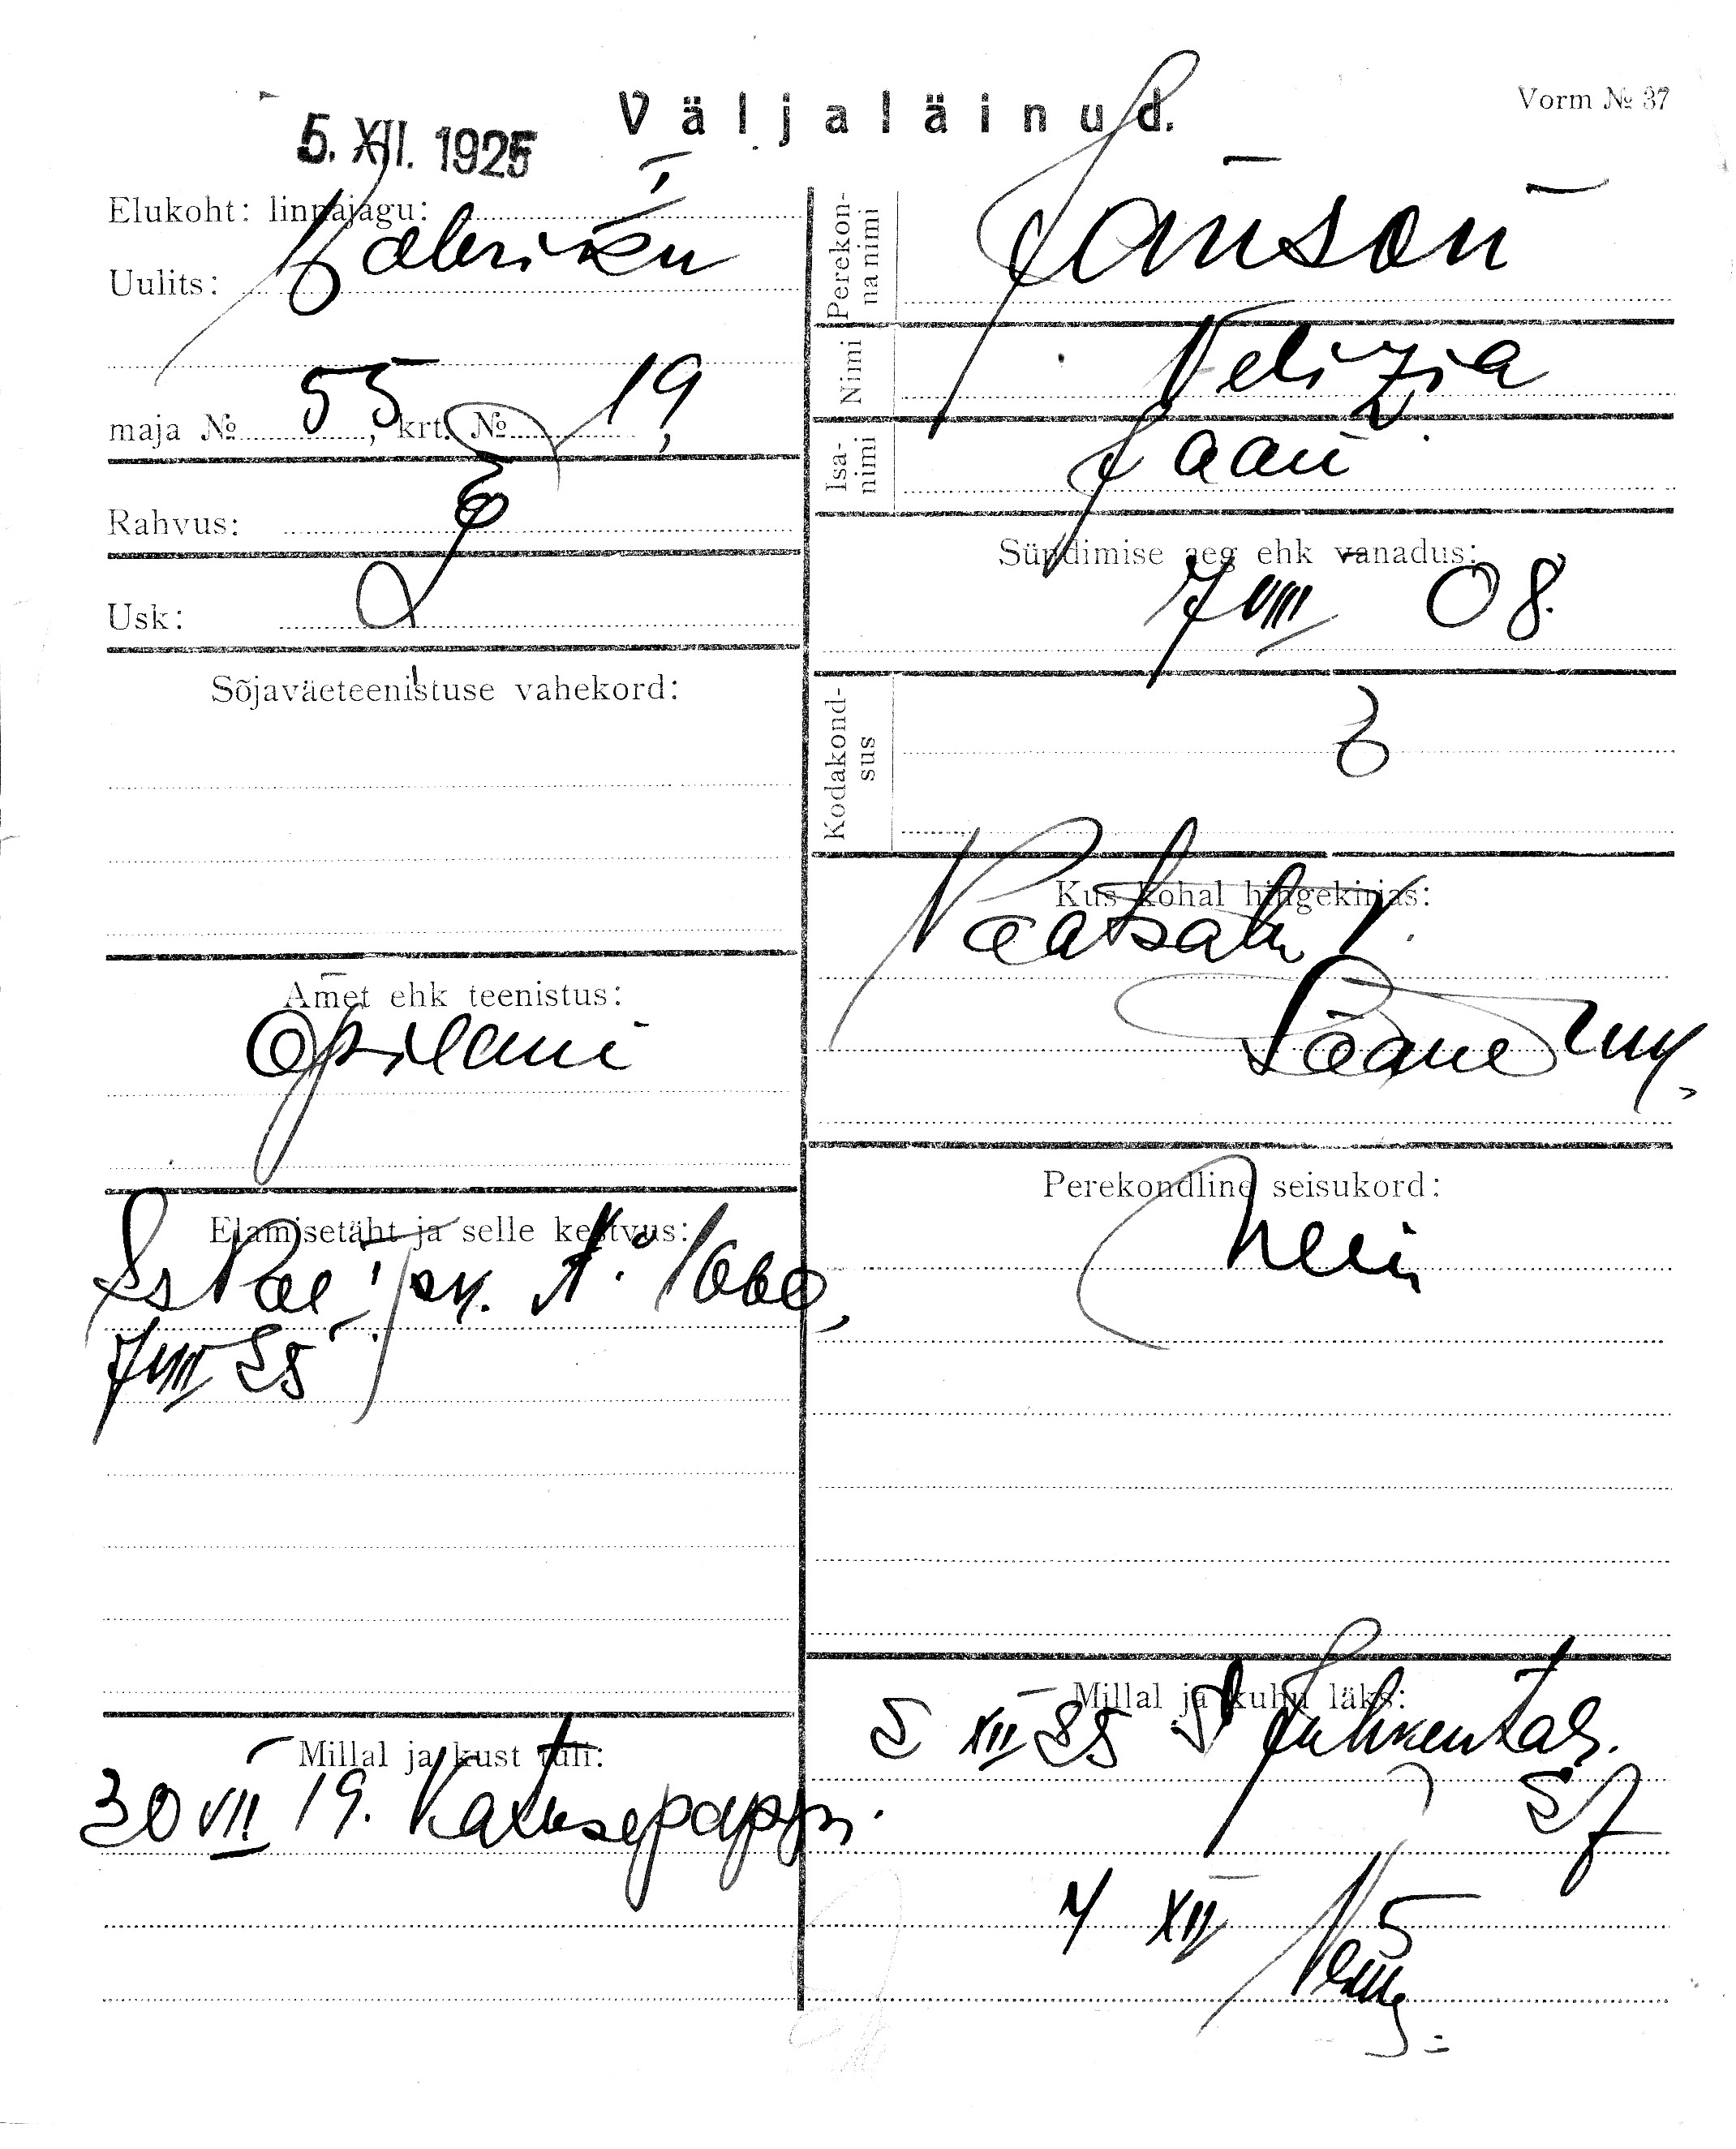 Väljaläinud.
Vorm № 37
5. XII. 1925
Elukoht: linnajagu:
Uulits: Vabriku
maja № 55, krt. № 19
Rahvus: E
Usk: L
Sõjaväeteenistuse vahekord:
Amet ehk teenistus:
Õpilane
Elamisetäht ja selle kestvus:
7 VIII 25
Millal ja kust tuli:
30 VII 19. Katusepappi.
Perekonna nimi
Janson
Nimi
Isanimi
Jaan
Sündimise aeg ehk vanadus:
7 VIII 08.
Kodakondsus
E
Kus kohal hingekirjas:
Vaatsalu v.
Lääne m.
Perekondline seisukord:
Millal ja kuhu läks:
5 XII 25 Juhkental
57
4 XII